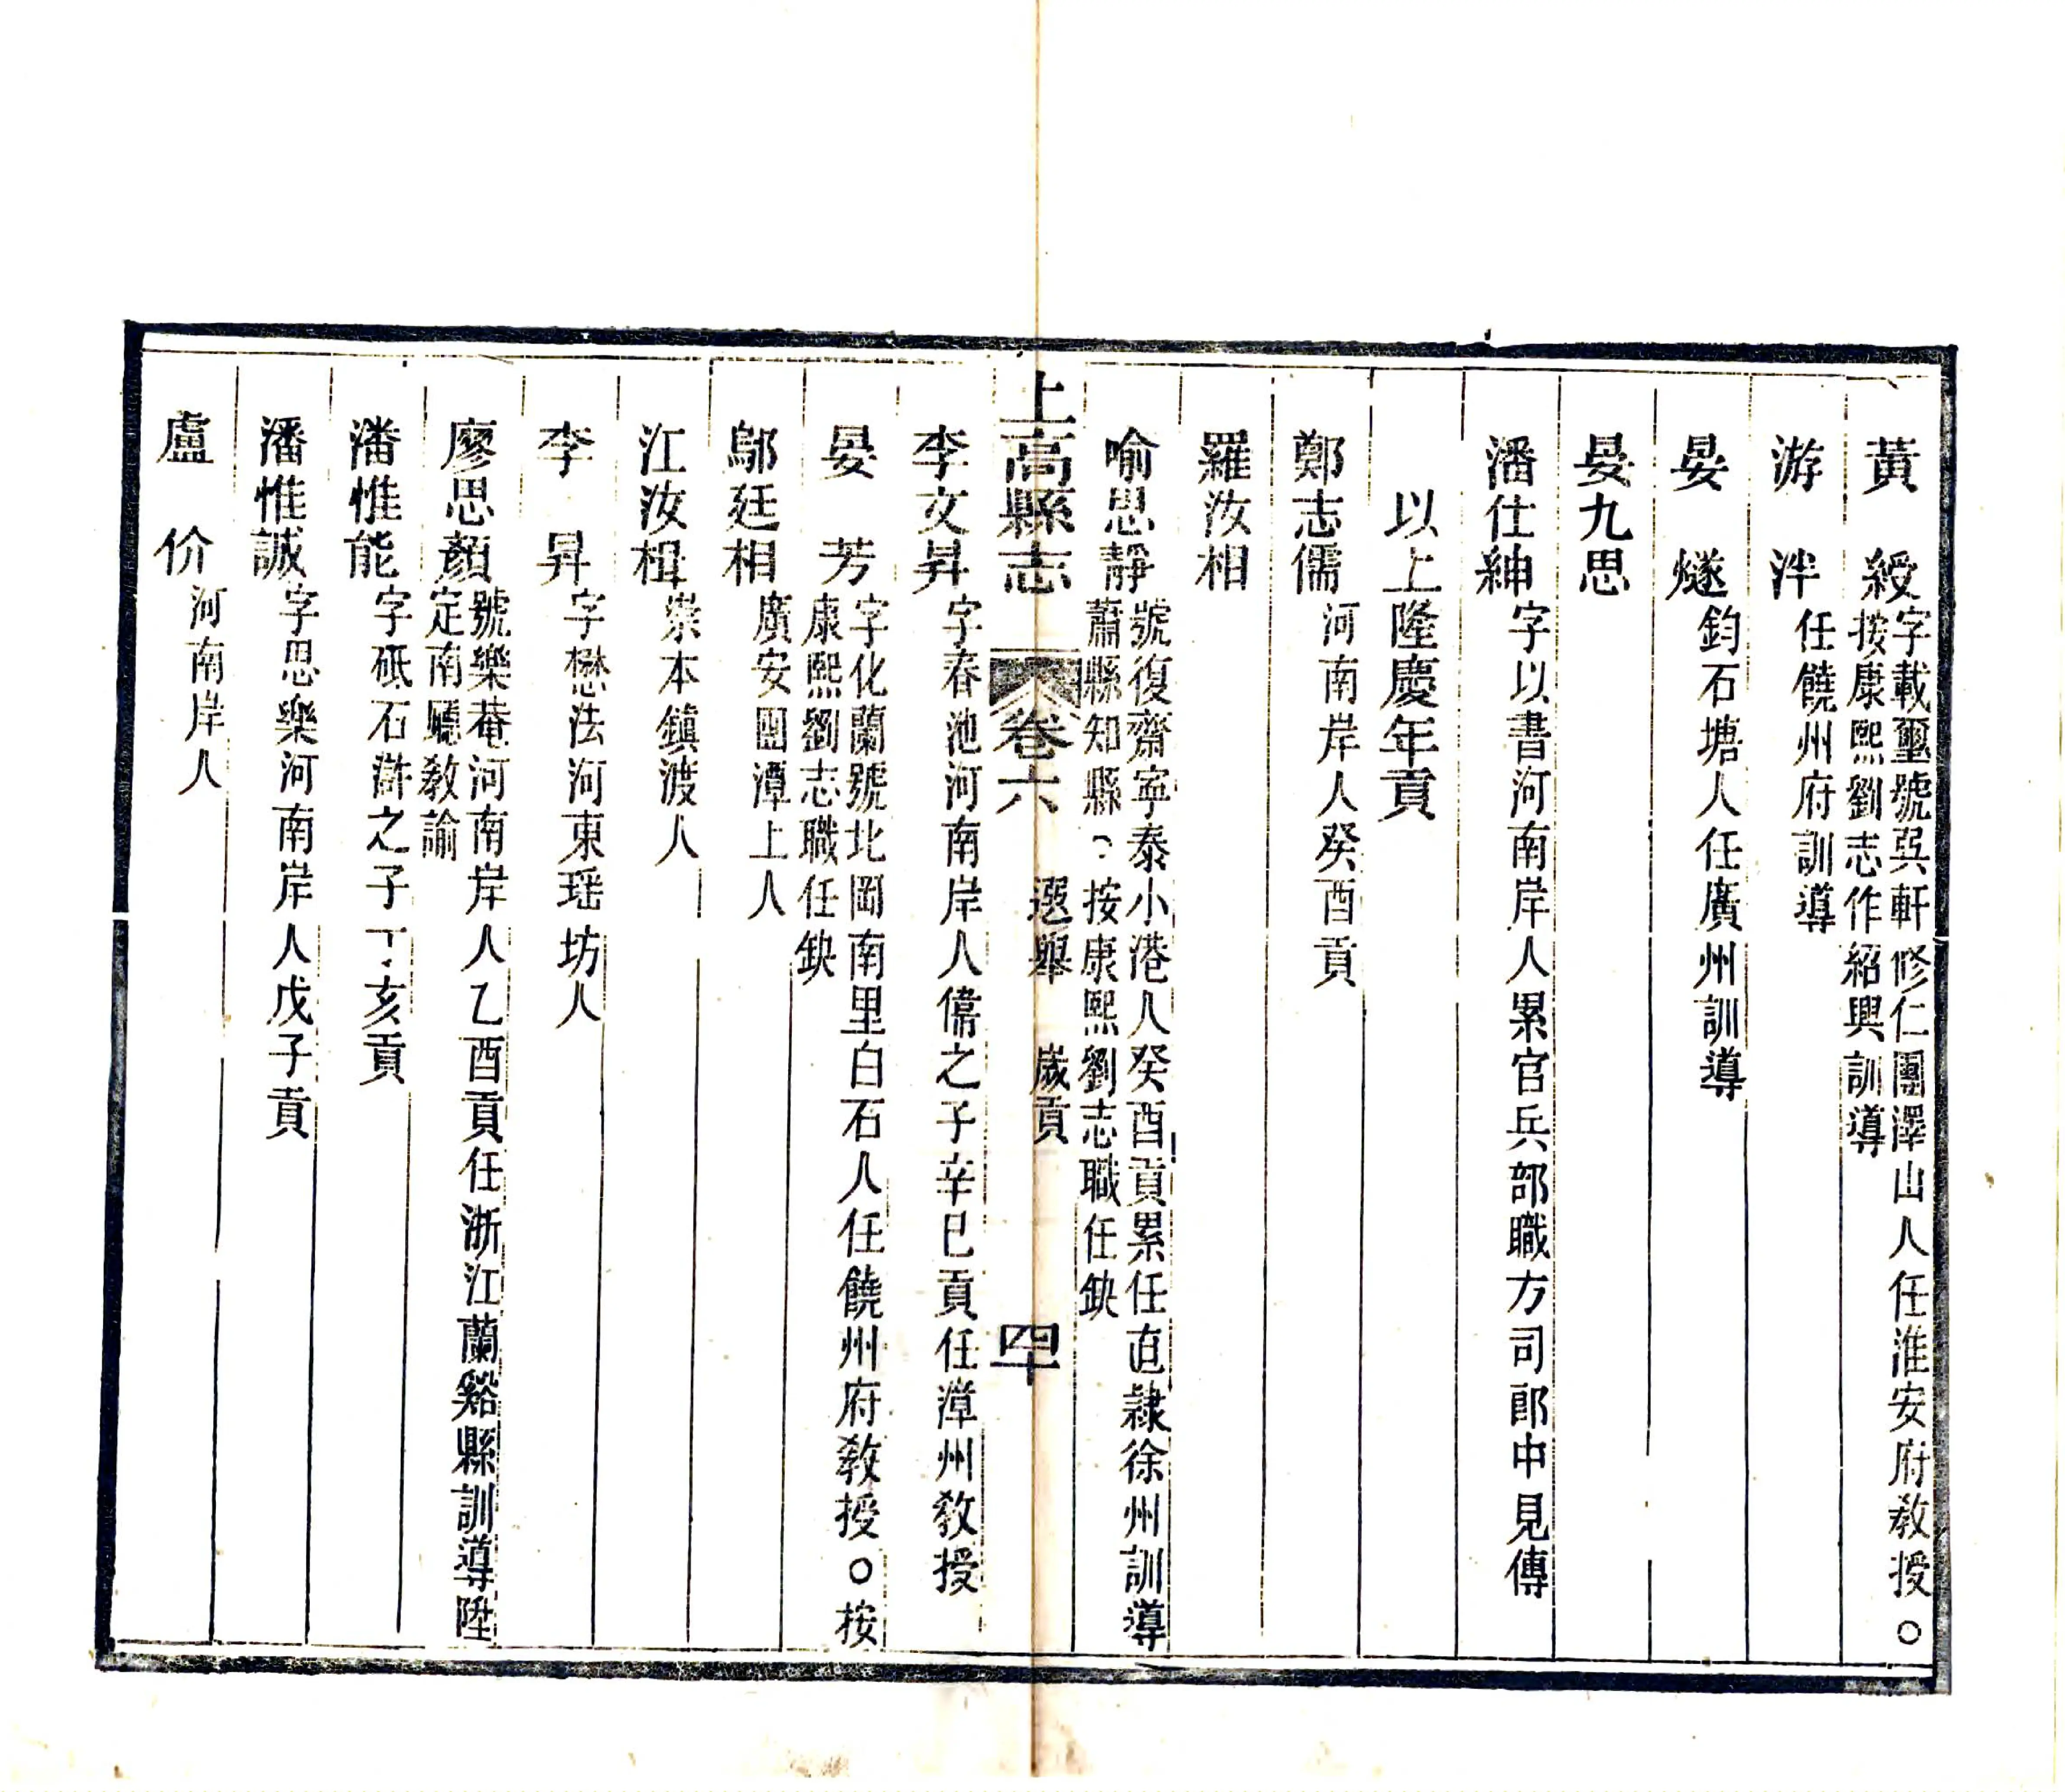 黃　綬字載璽號巽軒修仁團澤山人任淮安府教授○
按康熙劉志作紹興訓導
游　泮任饒州府訓導
晏　燧鈞石塘人任廣州訓導
晏九思
潘仕紳字以書河南岸人累官兵部職方司郎中見傳
以上隆慶年貢
鄭志儒河南岸人癸酉貢
羅汝相
喻思靜號復齋寧泰小港人癸酉貢累任直隸徐州訓導
蕭縣知縣○按康熙劉志職任缺
上高縣志　卷六　選舉　歲貢　四十
李文昇字春池河南岸人偉之子辛巳貢任漳州敎授
晏　芳字化蘭號北岡南里白石人任饒州府敎授○按
康熙劉志職任缺
鄔廷相廣安團潭上人
江汝楫崇本鎮渡人
李　昇字懋法河東瑶坊人
廖思顏號樂菴河南岸人乙酉貢任浙江蘭谿縣訓導陞
定南縣敎諭
潘惟能字砥石澣之子丁亥貢
潘惟誠字思樂河南岸人戊子貢
盧　价河南岸人